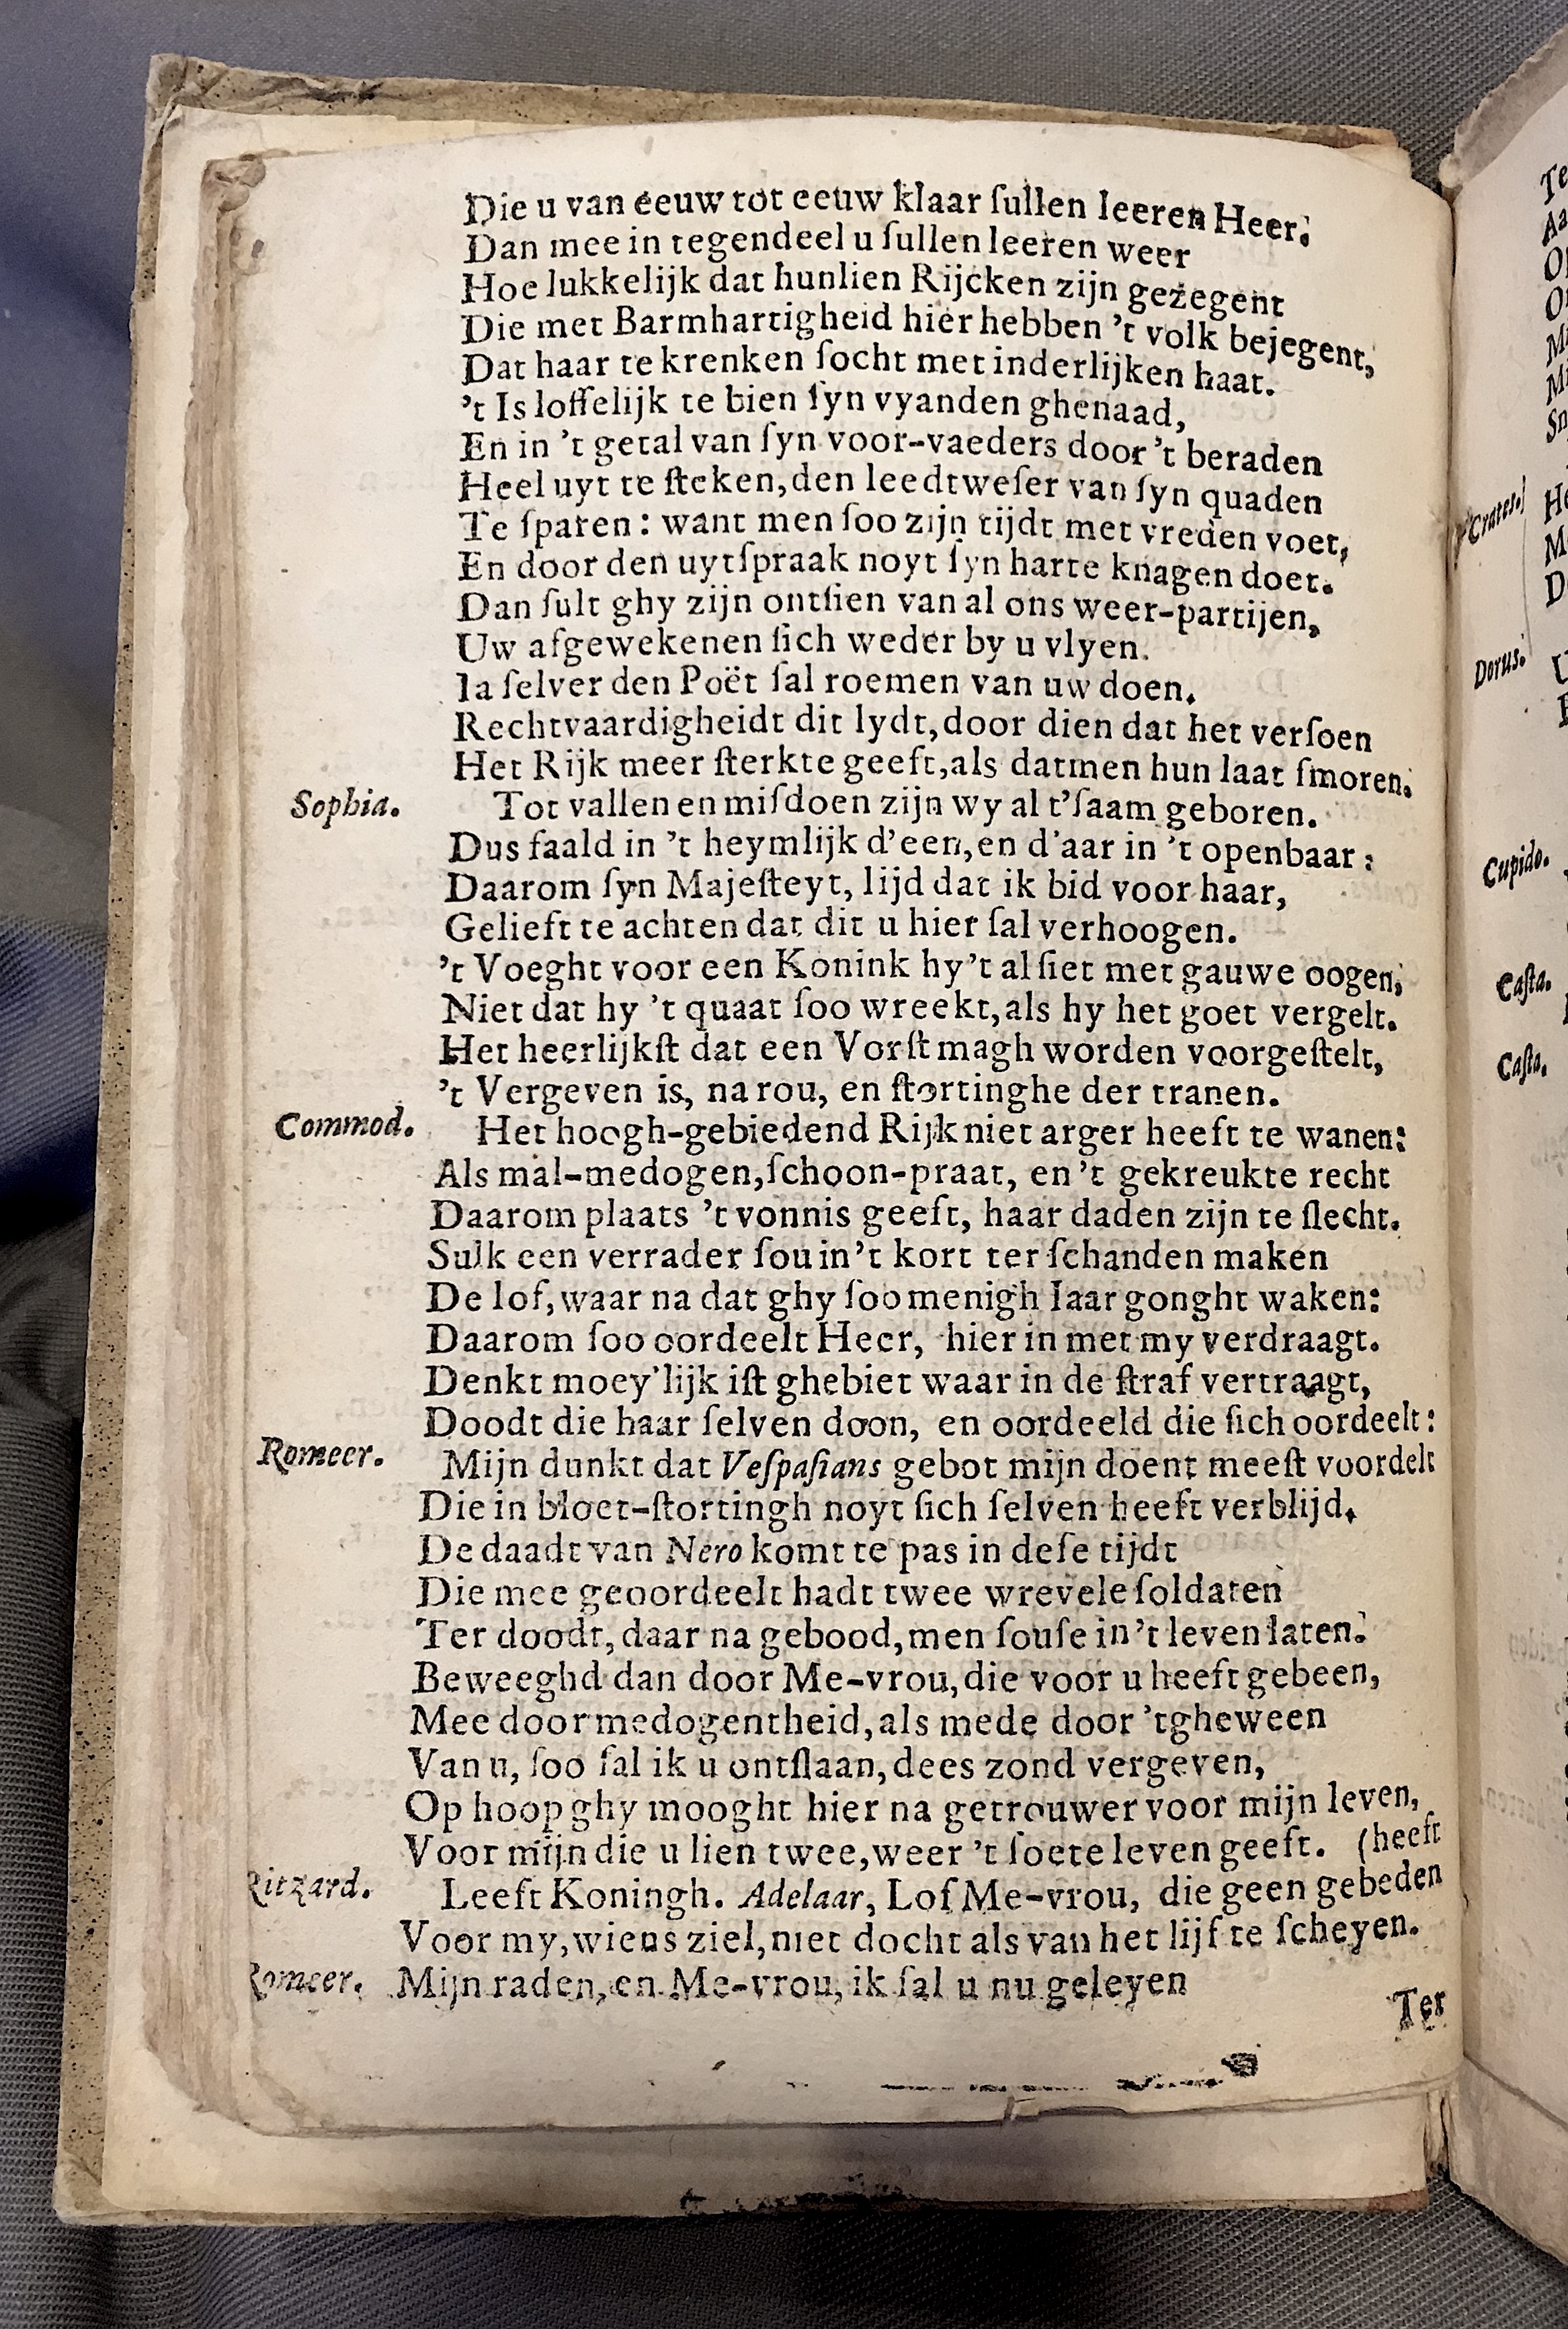 Die u van eeuw tot eeuw klaar ſullen leeren Heer.
Dan mee in tegendeel u ſullen leeren weer
Hoe lukkelijk dat hunlien Rijcken zijn gezegent
Die met Barmhartigheid hier hebben 't volk bejegent,
Dat haar te krenken ſocht met inderlijken haat.
't Is loffelijk te bien ſyn vyanden ghenaad,
En in 't getal van ſyn voor-vaeders door 't beraden
Heel uyt te ſteken, den leedtweſer van ſyn quaden
Te ſparen: want men ſoo zijn tijdt met vreden voet,
En door den uytſpraak noyt ſyn harte knagen doet.
Dan ſult ghy zijn ontſien van al ons weer-partijen,
Uw afgewekenen ſich weder by u vlyen.
Ia ſelver den Poët ſal roemen van uw doen.
Rechtvaardigheidt dit lydt, door dien dat het verſoen
Het Rijk meer ſterkte geeft, als datmen hun laat ſmoren.
Sophia. Tot vallen en miſdoen zijn wy al t'ſaam geboren.
Dus faald in 't heymlijk d'een, en d'aar in 't openbaar:
Daarom ſyn Majeſteyt, lijd dat ik bid voor haar,
Gelieft te achten dat dit u hier ſal verhoogen.
't Voeght voor een Konink hy't al ſiet met gauwe oogen,
Niet dat hy 't quaat ſoo wreekt, als hy het goet vergelt.
Het heerlijkſt dat een Vorſt magh worden voorgeſtelt,
't Vergeven is, na rou, en ſtortinghe der tranen.
Commod. Het hoogh-gebiedend Rijk niet arger heeft te wanen:
Als mal-medogen, ſchoon-praat, en 't gekreukte recht
Daarom plaats 't vonnis geeft, haar daden zijn te ſlecht.
Sulk een verrader ſou in't kort ter ſchanden maken
De lof, waar na dat ghy ſoo menigh Iaar gonght waken:
Daarom ſoo oordeelt Heer, hier in met my verdraagt.
Denkt moey'lijk iſt ghebiet waar in de ſtraf vertraagt,
Doodt die haar ſelven doon, en oordeeld die ſich oordeelt:
Romeer. Mijn dunkt dat Veſpaſians gebot mijn doent meeſt voordelt
Die in bloet-ſtortingh noyt ſich ſelven heeft verblijd.
De daadt van Nero komt te pas in deſe tijdt
Die mee geoordeelt hadt twee wrevele ſoldaten
Ter doodt, daar na gebood, men ſouſe in 't leven laten.
Beweeghd dan door Me-vrou, die voor u heeft gebeen,
Mee door medogentheid, als mede door 'tgheween
Van u, ſoo ſal ik u ontſlaan, dees zond vergeven,
Op hoop ghy mooght hier na getrouwer voor mijn leven,
Voor mijn die u lien twee, weer 't ſoete leven geeft. (heeft
Ritzard. Leeft Koningh. Adelaar, Lof Me-vrou, die geen gebeden
Voor my, wiens ziel, niet docht als van het lijf te ſcheyen.
Romeer. Mijn raden, en Me-vrou, ik ſal u nu geleyen
Ter
Crates.
Dorus.
Cupido.
Caſta.
Caſta.